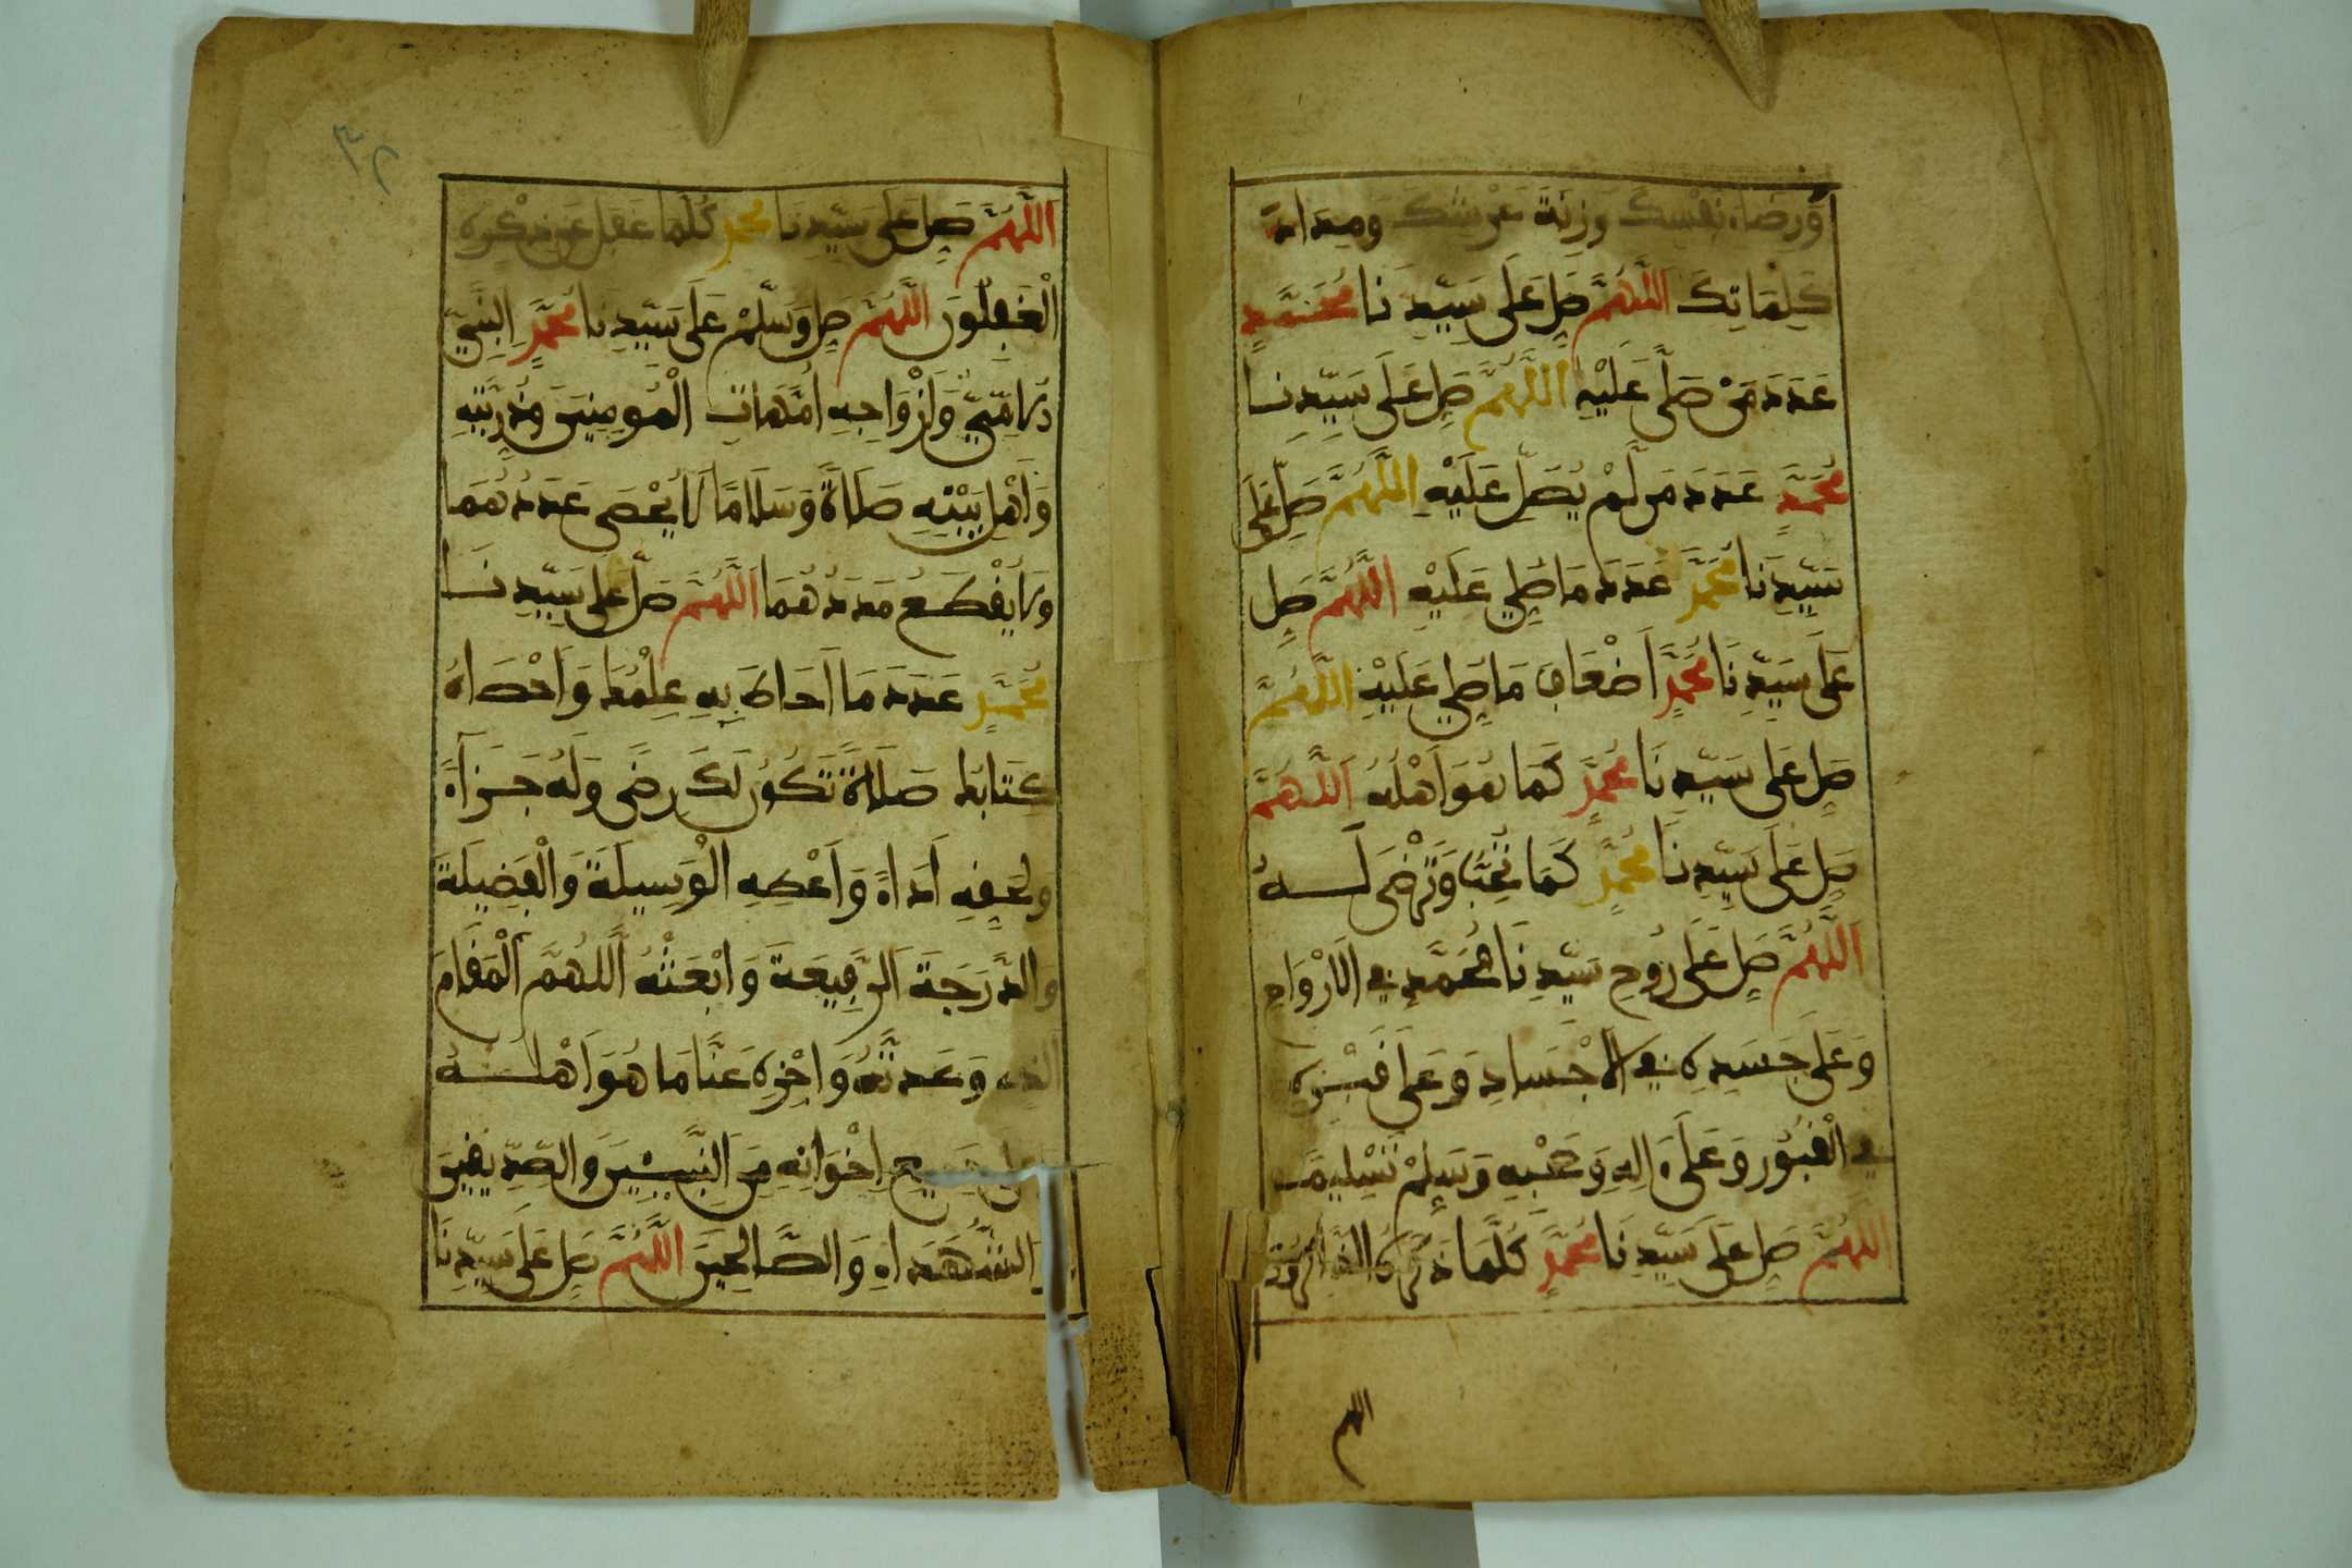 وَرِضَاءَ نَفْسِكَ وَزِنَةَ عَرْشِكَ وَمِدَادَ
كَلِمَاتِكَ اللَّهُمَّ صَلِّ عَلَى سَيِّدِنَا مُحَمَّدٍ
عَدَدَ مَن صَلَّى عَلَيْهِ اللَّهُمَّ صَلِّ عَلَى سَيِّدِنَا
مُحَمَّدٍ عَدَدَ مَن لَّمْ يُصَلِّ عَلَيْهِ اللَّهُمَّ صَلِّ عَلَى
سَيِّدِنَا مُحَمَّدٍ عَدَدَ مَا صُلِّيَ عَلَيْهِ اللَّهُمَّ صَلِّ
عَلَى سَيِّدِنَا مُحَمَّدٍ اَضْعَافَ مَا صُلِّيَ عَلَيْهِ اللَّهُمَّ
صَلِّ عَلَى سَيِّدِنَا مُحَمَّدٍ كَمَا هُوَ اَهْلُهُ اللَّهُمَّ
صَلِّ عَلَى سَيِّدِنَا مُحَمَّدٍ كَمَا تُحِبُّ وَتَرْضَى لَهُ
اللَّهُمَّ صَلِّ عَلَى رُوحِ سَيِّدِنَا مُحَمَّدٍ فِي الَارْوَاحِ
وَعَلَى جَسَدِهِ فِي الَاجْسَادِ وَعَلَى قَبْرِهِ
فِي الْقُبُورِ وَعَلَى ءَالِهِ وَصَحْبِهِ وَسَلِّمْ تَسْلِيمًا
اللَّهُمَّ صَلِّ عَلَى سَيِّدِنَا مُحَمَّدٍ كُلَّمَا ذَكَرَهُ الذَّاكِرُونَ
اللهم
٣٢
اللَّهُمَّ صَلِّ عَلَى سَيِّدِنَا مُحَمَّدٍ كُلَّمَا غَفَلَ عَن ذِكْرِهِ
الْغَفِلُونَ اللَّهُمَّ صَلِّ وَسَلِّمْ عَلَى سَيِّدِنَا مُحَمَّدٍ النَّبِيِّ
الَامِّيِّ وَأَزْوَاجِهِ أُمَّهَاتِ الْمُومِنِينَ وَذُرِّيَّتِهِ
وَأَهْلِ بَيْتِهِ صَلَاةً وَسَلَامًا لَا يُحْصَى عَدَدُهُمَا
وَلَا يُقْطَعُ مَدَدُهُمَا اللَّهُمَّ صَلِّ عَلَى سَيِّدِنَا
مُحَمَّدٍ عَدَدَ مَا اَحَاطَ بِهِ عِلْمُكَ وَاَحْصَاهُ
كِتَابُكَ صَلَاةً تَكُونُ لَكَ رِضًى وَلَهُ جَزَاءً
وَلِحَقِّهِ أَدَاءً وَاَعْطِهِ الْوَسِيلَةَ وَالْفَضِيلَةَ
وَالدَّرَجَةَ الرَّفِيعَةَ وَابْعَثْهُ اللَّهُمَّ الْمَقَامَ
الذِي وَعَدتَّهُ وَاجْزِهِ عَنَّا مَا هُوَ اَهْلُهُ
وعلى جَمِيعِ إِخْوَانِهِ مِنَ النَّبِيِّينَ وَالصِّدِّيقِينَ
وَالشُّهَدَاءِ وَالصَّالِحِينَ اللَّهُمَّ صَلِّ عَلَى سَيِّدِنَا